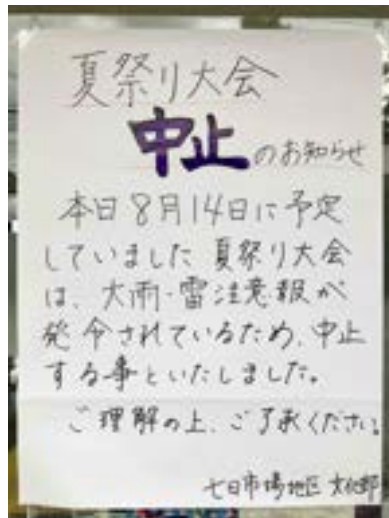 夏祭り大会
中止のお知らせ
本日8月14日に予定
していました夏祭り大会
は、大雨・雷注意報が
発令されているため、中止
する事といたしました。
ご理解の上、ご了承ください。
七日市場地区 文化部